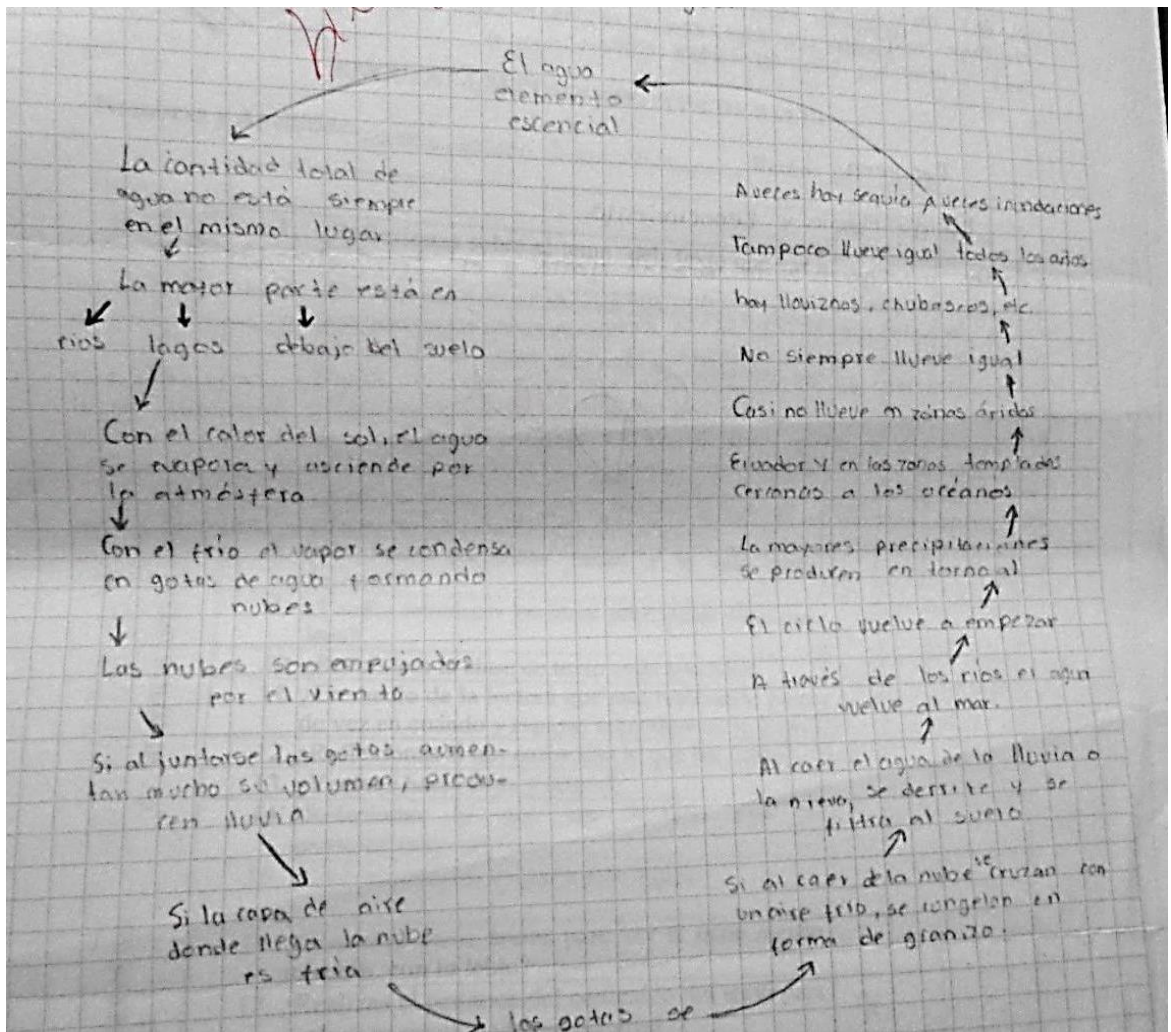 El agua
elemento
escencial
La cantidad total de
agua no está siempre
en el mismo lugar
La mayor parte está en
rios lagos debajo del suelo
Con el calor del sol, el agua
se evapora y asciende por
la atmósfera
Con el frio el vapor se condensa
en gotas de agua formando
nubes
Las nubes son empujadas
por el viento
Si al juntarse las gotas aumen-
tan mucho su volumen, produ-
cen lluvia
Si la capa de aire
donde llega la nube
es fria
las gotas se
Si al caer de la nube se cruzan con
un aire frio, se congelan en
forma de granizo.
Al caer el agua de la lluvia o
la nieve, se derrite y se
filtra al suelo
A través de los rios el agua
vuelve al mar.
El ciclo vuelve a empezar
La mayores precipitaciones
se producen en torno al
Ecuador y en las zonas templadas
cercanas a los océanos
Casi no llueve en zonas áridas
No siempre llueve igual
hay lloviznas, chubascos, etc.
Tampoco llueve igual todos los años
A veces hay sequia A veces inundaciones